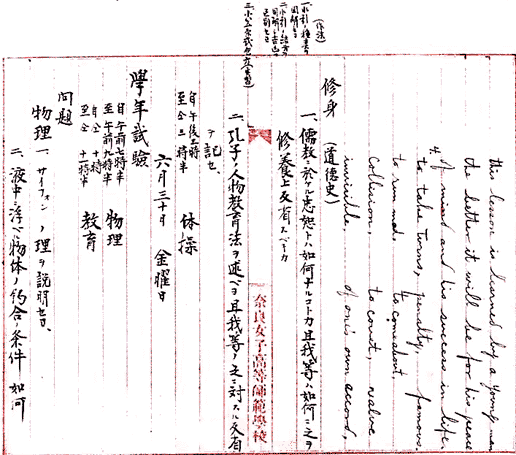 (作法)
this lesson is learned by a young man
the better it will be for his peace
of mind and his success in life.
4.
to take turns, penalty, famous.
to run mad. to come about.
collusion, to const, valve
invisible, of one's own accord,
修身 (道德史)
一、儒教ニ於ケル忠恕トハ如何ナルコトカ且我等ハ如何ニ之ヲ
修養上反省スベキカ
二、孔子ノ人物教育法ヲ述ベヨ且我等ノ之ニ対スル反省
ヲ記セ、
奈良女子高等師範學校
自午後二時
至仝三時半 体操
六月三十日 金曜日
學年試驗
自午前七時半
至午前九時半 物理
自仝十時
至仝十一時半 教育
問題
物理 一、サイフォンノ理ヲ説明セヨ
二、液中ニ浮ベル物体ノ釣合ノ条件如何